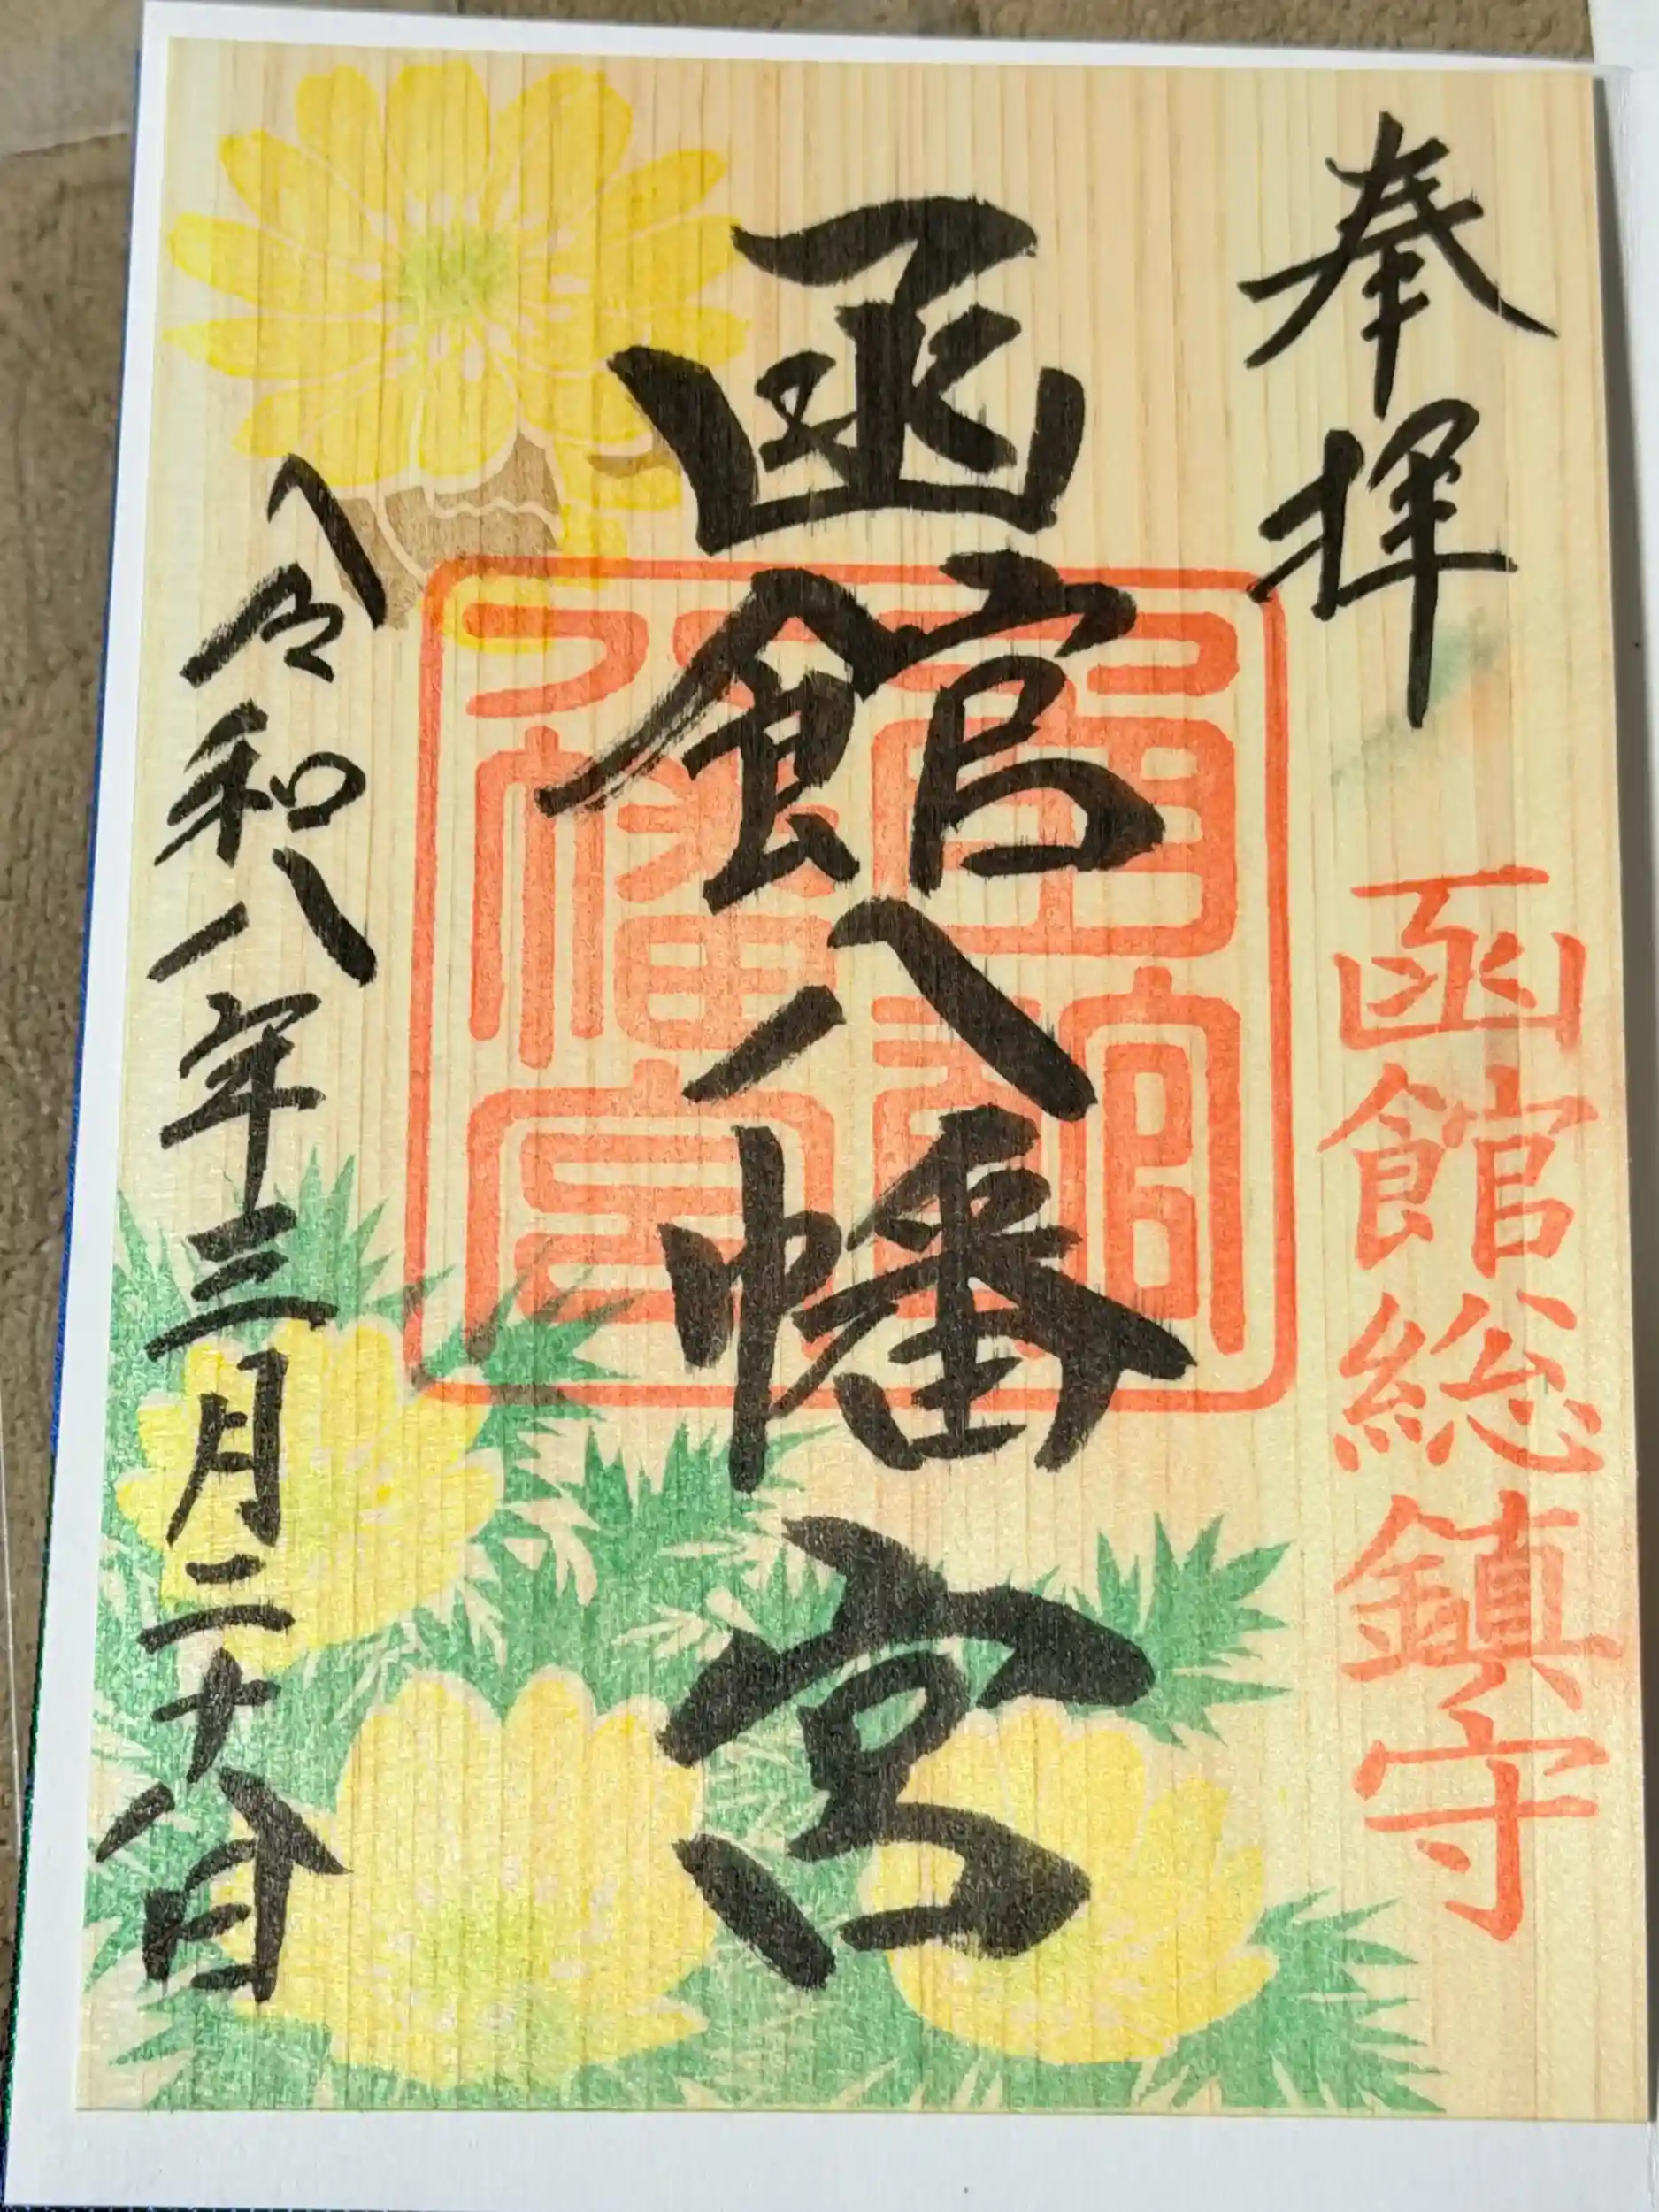 奉拝
函館総鎮守
函館八幡宮
令和八年三月二十八日